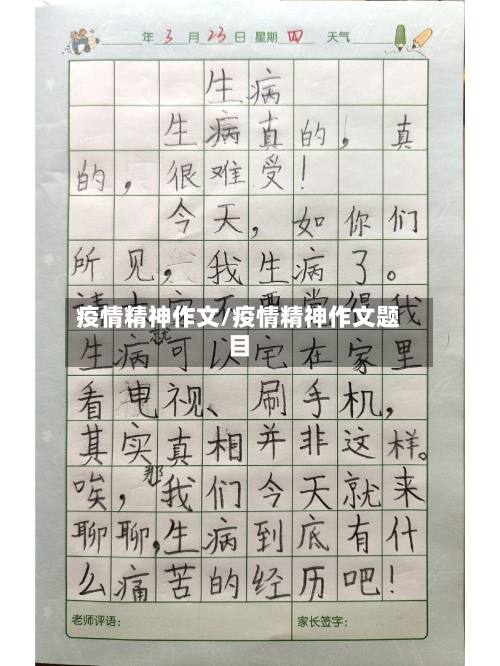 年 3 月 23 日 星期 四 天气
生病
生病真的，真
的，很难受！
今天，如你们
所见，我生病了。
疫情精神作文/疫情精神作文题
目
生病就可以宅在家里
看电视、刷手机，
其实真相并非这样。
唉，那我们今天就来
聊聊，生病到底有什
么痛苦的经历吧！
老师评语： 家长签字：